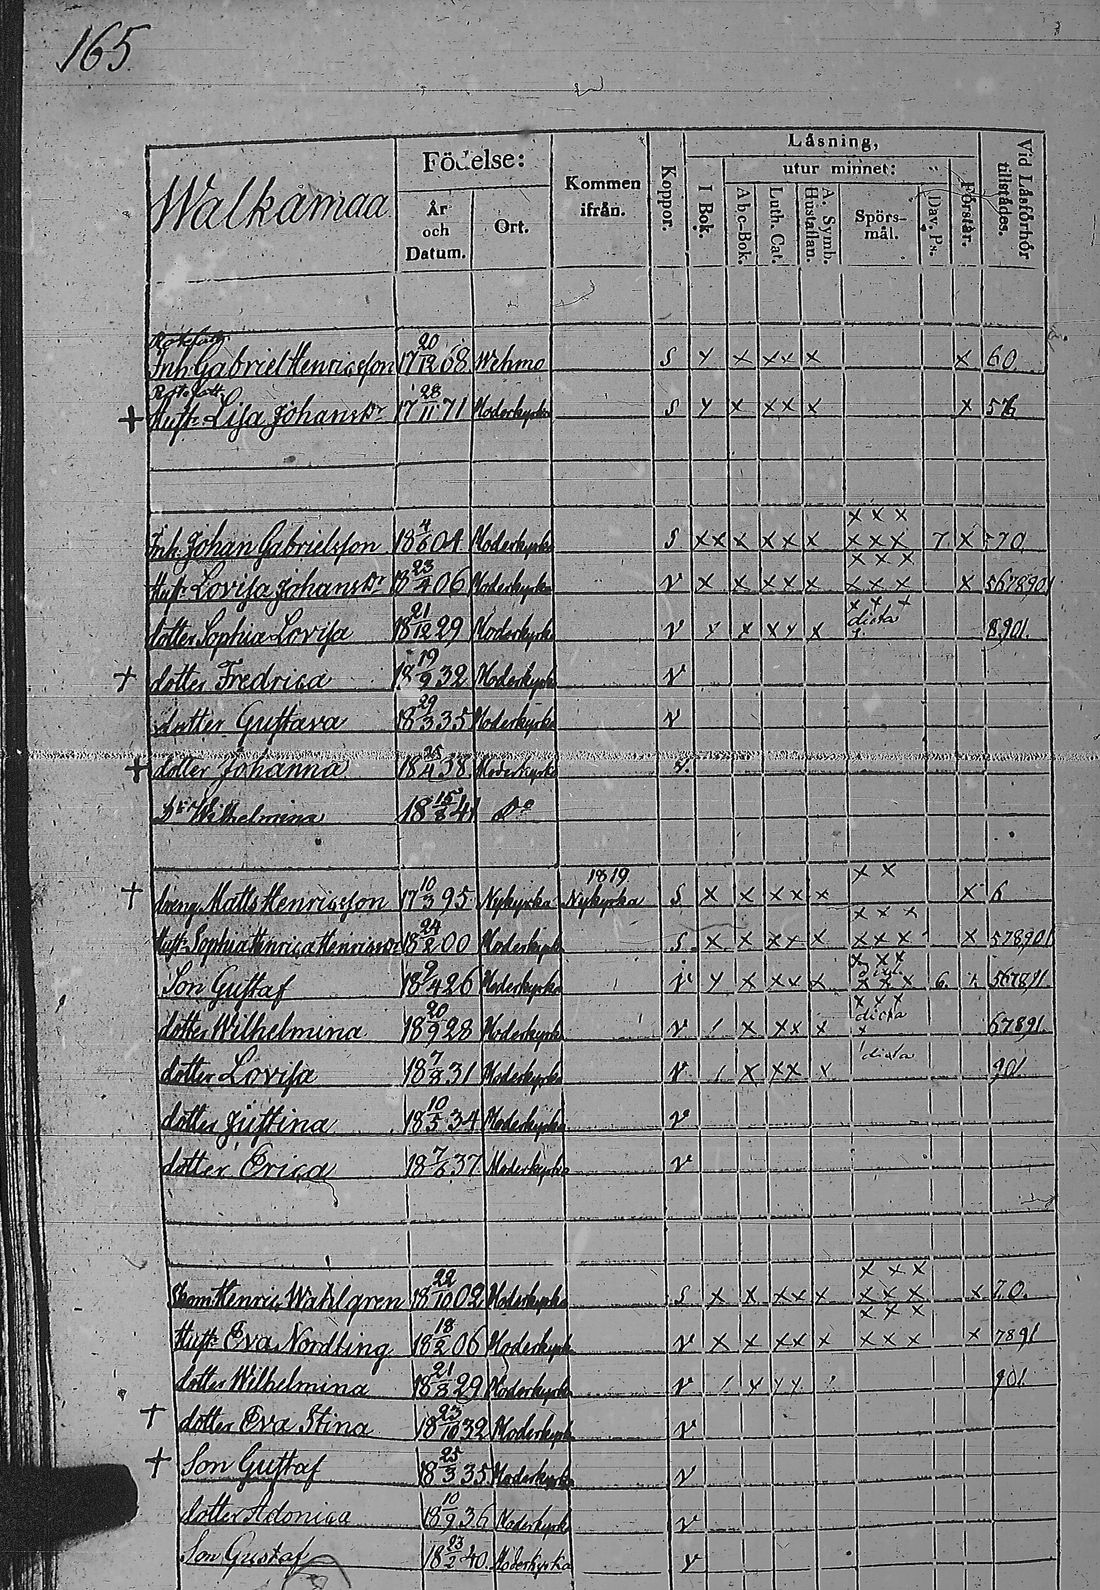 165
Walkamaa
Födelse:
År och Datum.
Ort.
Kommen ifrån.
Koppor.
Läsning,
I Bok.
utur minnet:
Abc-Bok.
Luth. Cat.
A. Symb. Hustaflan.
Spörs-mål.
Dav. Ps.
Förstår.
Vid Läsförhör tillstädes.
Inh. Gabriel Henricsson 17 20/12 68 Wehmo S x x xx x x 60
+ Hust. Lisa Johansdr 17 28/11 71 Moderkyrka S x x xxx x 576
x x x
Inh. Johan Gabrielsson 18 4/6 04 Moderkyrka S xx x xxx x xxx 7 x 70
x x x
Hust. Lovisa Johansdr 18 23/4 06 Moderkyrka v x x xxx x xxx x 5678901
x x x
dotter Sophia Lovisa 18 21/12 29 Moderkyrka v x x xx x dicta 8901.
+ dotter Fredrica 18 19/9 32 Moderkyrka v
dotter Gustava 18 29/3 35 Moderkyrka v
+ dotter Johanna 18 25/4 38 Moderkyrka v.
Dr Wilhelmina 18 15/8 41 Do
x x
+ dreng Matts Henricsson 17 10/3 95 Nykyrka 1819 Nykyrka S x x xxx x x 6
x x x
Hust. Sophia Henrica Henricsdr 18 24/2 00 Moderkyrka S. x x xxx x xxx x 578901
x x x
Son Gustaf 18 9/4 26 Moderkyrka v x x xxx x xxx 6.
x x x
dotter Wilhelmina 18 20/9 28 Moderkyrka v x xx x dicta x 67891.
dotter Lovisa 18 7/8 31 Moderkyrka v x xx x dicta 901.
dotter Justina 18 10/5 34 Moderkyrka v
dotter Erica 18 7/6 37 Moderkyrka v
x x x
Henric Wahlgren 18 22/10 02 Moderkyrka S x x xxx x xxx x 70.
x x x
Hust. Eva Nordling 18 18/2 06 Moderkyrka v x x xxx x xxx x 7891
dotter Wilhelmina 18 21/3 29 Moderkyrka v x xx 901.
+ dotter Eva Stina 18 23/10 32 Moderkyrka v
+ Son Gustaf 18 25/3 35 Moderkyrka v
dotter Adonica 18 10/9 36 Moderkyrka v
Son Gustaf 18 23/2 40. Moderkyrka v